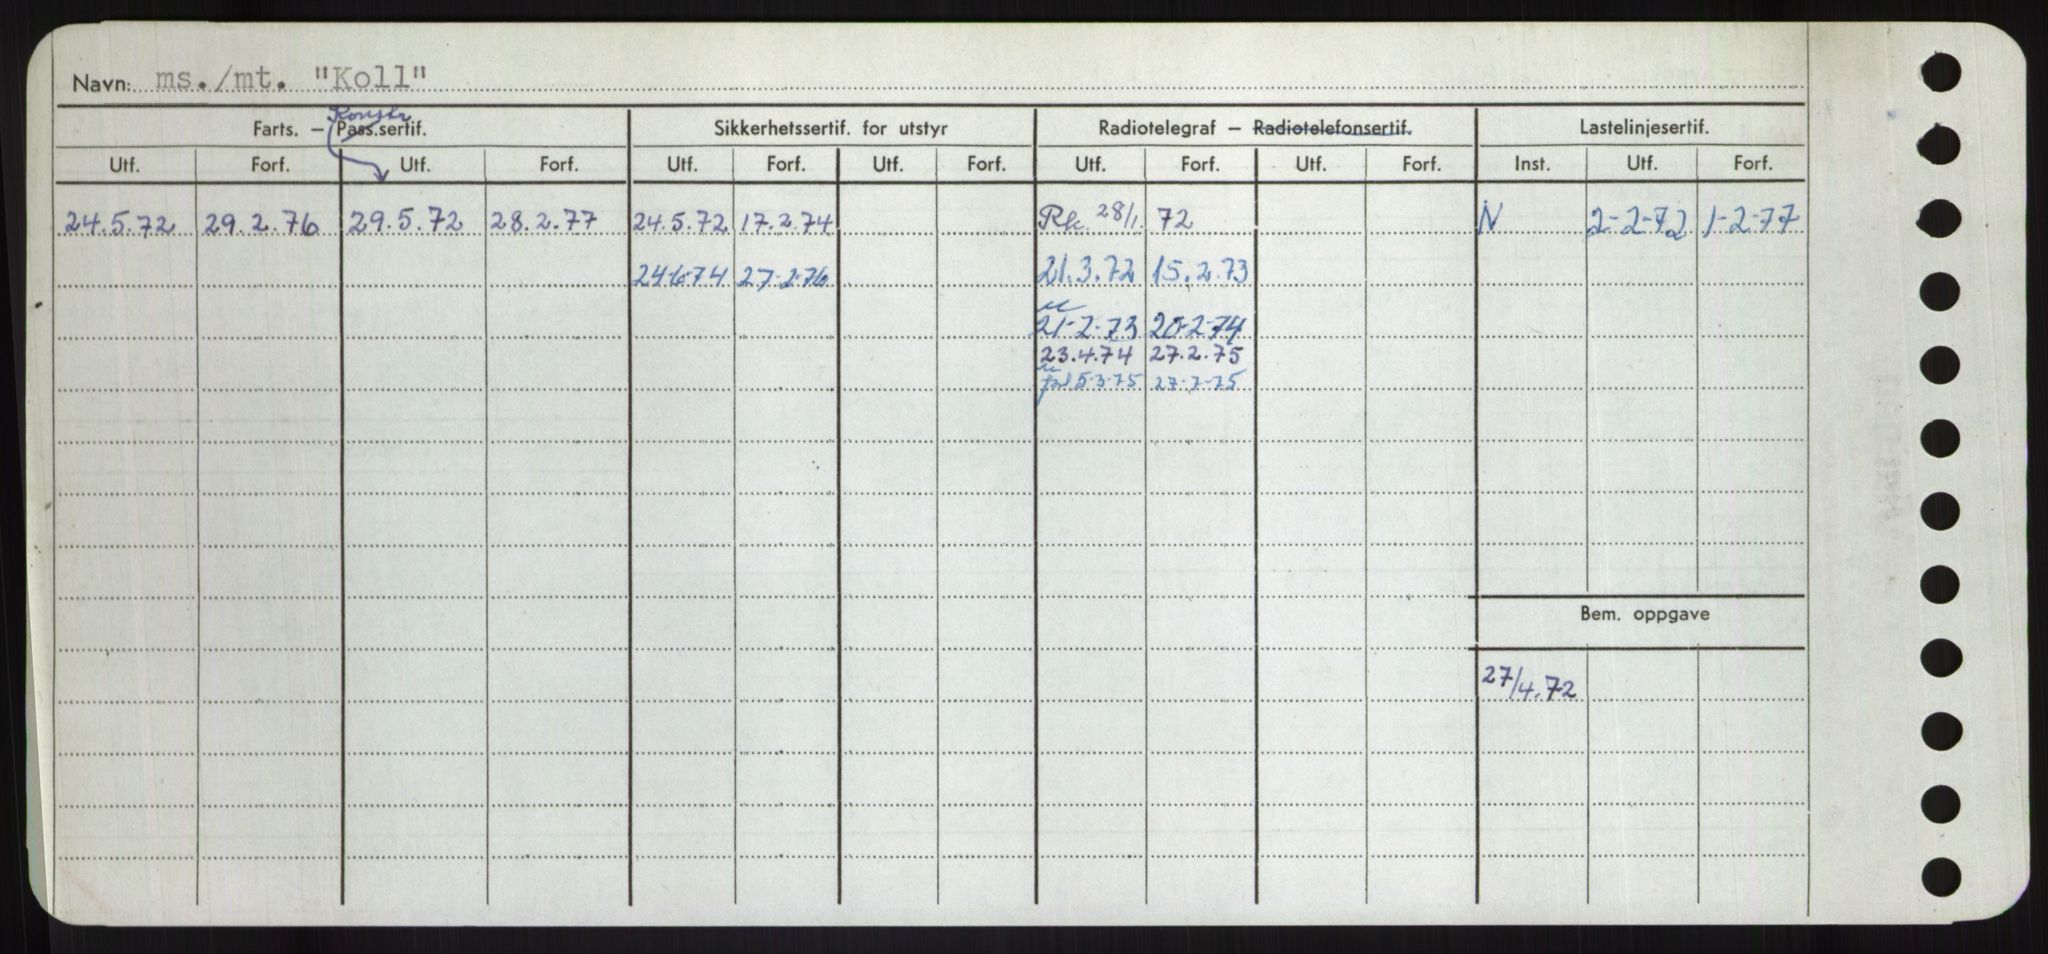 Navn: ms./mt. "Koll"
Konstr
Farts. – Pass.sertif. Sikkerhetssertif. for utstyr Radiotelegraf – Radiotelefonsertif. Lastelinjesertif.
Utf. Forf. Utf. Forf. Utf. Forf. Utf. Forf. Utf. Forf. Utf. Forf. Inst. Utf. Forf.
24.5.72 29.2.76 29.5.72 28.2.77 24.5.72 17.2.74 28/1. 72 N 2-2-72 1-2-77
24-6-74 27-2-76 21.3.72 15.2.73
21-2-73 20-2-74
23.4.74 27.2.75
5-3-75 27-7-75
Bem. oppgave
27/4.72